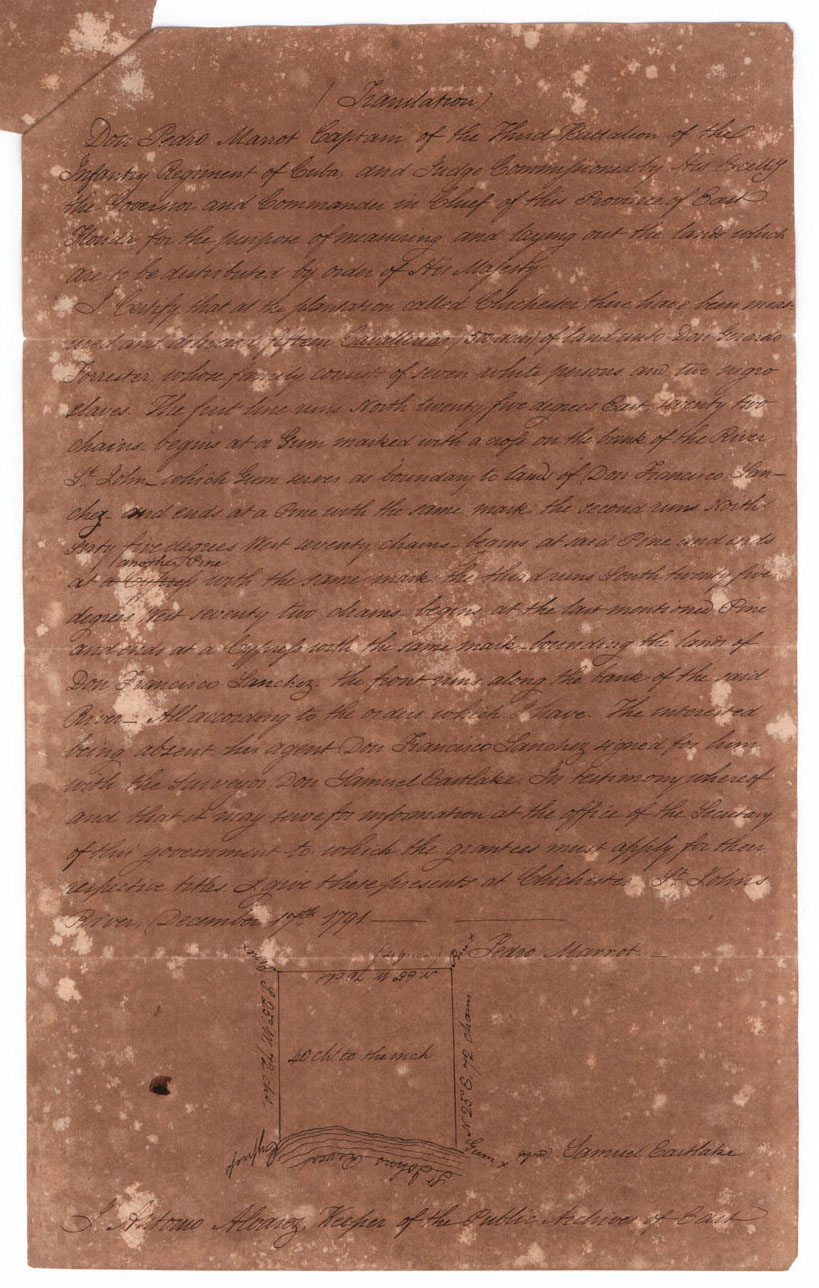 (Translation)
Don Pedro Marrot Captain of the Third Battalion of the
Infantry Regiment of Cuba, and Judge Commissioned by His Excelly
the Governor and Commander in Chief of this Province of East
Florida for the purpose of measuring and laying out the lands which
are to be distributed by order of His Majesty
I Certify that at the plantation called Chichester there have been meas-
ured and delivered fifteen Cavallerias (500 acres) of land unto Don Gerardo
Forrester, whose family consists of seven white persons and two negro
slaves. The first line runs North twenty five degrees East, seventy two
chains, begins at a Gum marked with a cross on the bank of the River
St. John_ which Gum serves as boundary to lands of Don Francisco San-
chez and ends at a Pine with the same mark: the second runs North
Sixty five degrees West seventy chains_ begins at said Pine and ends
another Pine
at a Cypress with the same mark: the third runs South twenty five
degrees West seventy two chains_ begins at the last mentioned Pine
and ends at a Cypress with the same mark_ bounding the lands of
Don Francisco Sanchez, the front runs along the bank of the said
River_ All according to the orders which I have. The interested
being absent, his agent Don Francisco Sanchez signed for him
with the Surveyor Don Samuel Eastlake. In testimony whereof
and that it may serve for information at the office of the Secretary
of this government to which the grantees must apply for their
respective titles I give these presents at Chichester St. Johns
River, December 17th 1791
(signed) Pedro Marrot_
Pine x
Pine x
N 65° W 70 ch.
S 25° W 72 ch.
40 ch. to the inch
N 25° E, 72 chains
Cypress
St. Johns River
x Gum
Samuel Eastlake
I Antonio Alvarez Keeper of the Public Archives of East